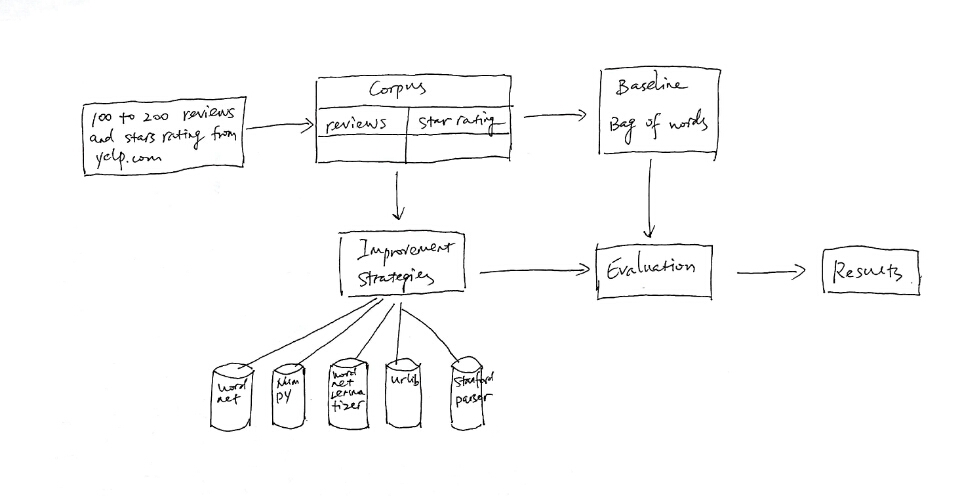 100 to 200 reviews
and stars rating from
yelp.com
Corpus
reviews
star rating
Baseline
Bag of words
Improvement
strategies
Evaluation
Results
word
net
Num
py
word
net
lemma
tizer
urlib
Stanford
parser